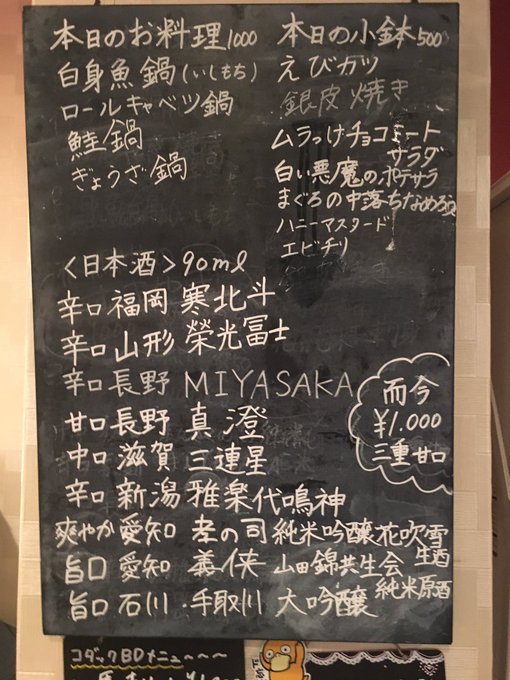 本日のお料理1000
白身魚鍋(いしもち)
ロールキャベツ鍋
鮭鍋
ぎょうざ鍋
本日の小鉢500
えびカツ
銀皮焼き
ムラっけチョコミート
サラダ
白い悪魔のポテサラ
まぐろの中落ちなめろう
ハニーマスタード
エビチリ
<日本酒>90ml
辛口 福岡 寒北斗
辛口 山形 榮光冨士
辛口 長野 MIYASAKA
甘口 長野 真澄
中口 滋賀 三連星
辛口 新潟 雅楽代鳴神
爽やか 愛知 孝の司 純米吟醸花吹雪
生酒
旨口 愛知 義侠 山田錦共生会
純米原酒
旨口 石川・手取川 大吟醸
而今
¥1.000
三重 甘口
コダックBDメニュ〜〜〜